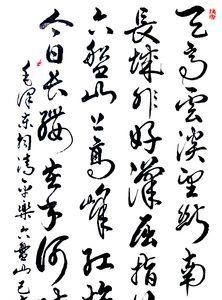 天高雲淡望斷南
長城非好漢屈指
六盤山上高峰紅
今日长纓在手何
毛澤東詞清平樂六盤山己